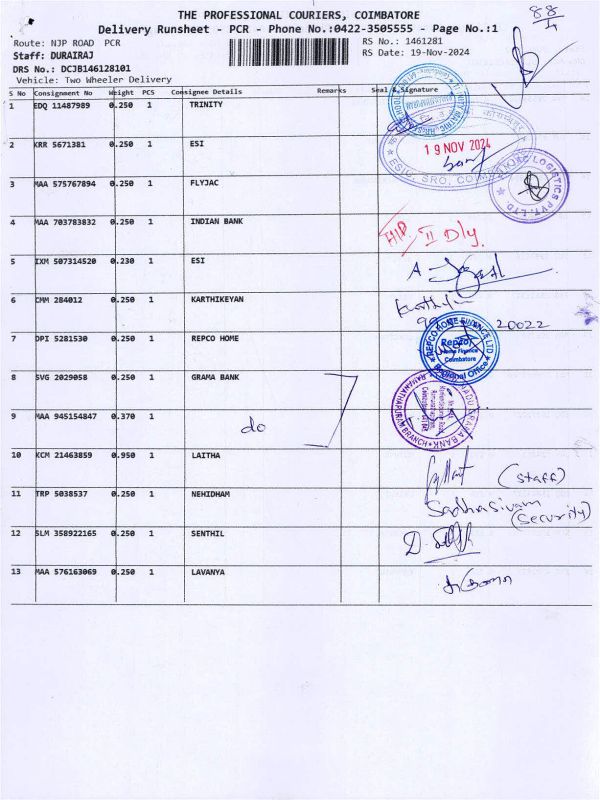 THE PROFESSIONAL COURIERS, COIMBATORE
88/4
Delivery Runsheet - PCR - Phone No.:0422-3505555 - Page No.:1
Route: NJP ROAD PCR
RS No.: 1461281
Staff: DURAIRAJ
RS Date: 19-Nov-2024
DRS No.: DCJB146128101
Vehicle: Two Wheeler Delivery
S No Consignment No Weight PCS Consignee Details Remarks Seal & Signature
1 EDQ 11487989 0.250 1 TRINITY
2 KRR 5671381 0.250 1 ESI
19 NOV 2024
ESIC, SRO, COIM
3 MAA 575767894 0.250 1 FLYJAC
LOGISTICS PVT. LTD
4 MAA 703783832 0.250 1 INDIAN BANK II Dly.
5 IXM 507314520 0.230 1 ESI
6 CMM 284012 0.250 1 KARTHIKEYAN
20022
7 DPI 5281530 0.250 1 REPCO HOME
REPCO HOME FINANCE LTD
Repco
Home Finance
Coimbatore
Regional Office
8 SVG 2029058 0.250 1 GRAMA BANK
RAMANATHAPURAM BRANCH
9 MAA 945154847 0.370 1 do
10 KCM 21463859 0.950 1 LAITHA (Staff)
11 TRP 5038537 0.250 1 NEHIDHAM Sadhasivam
(Security)
12 SLM 358922165 0.250 1 SENTHIL
13 MAA 576163069 0.250 1 LAVANYA